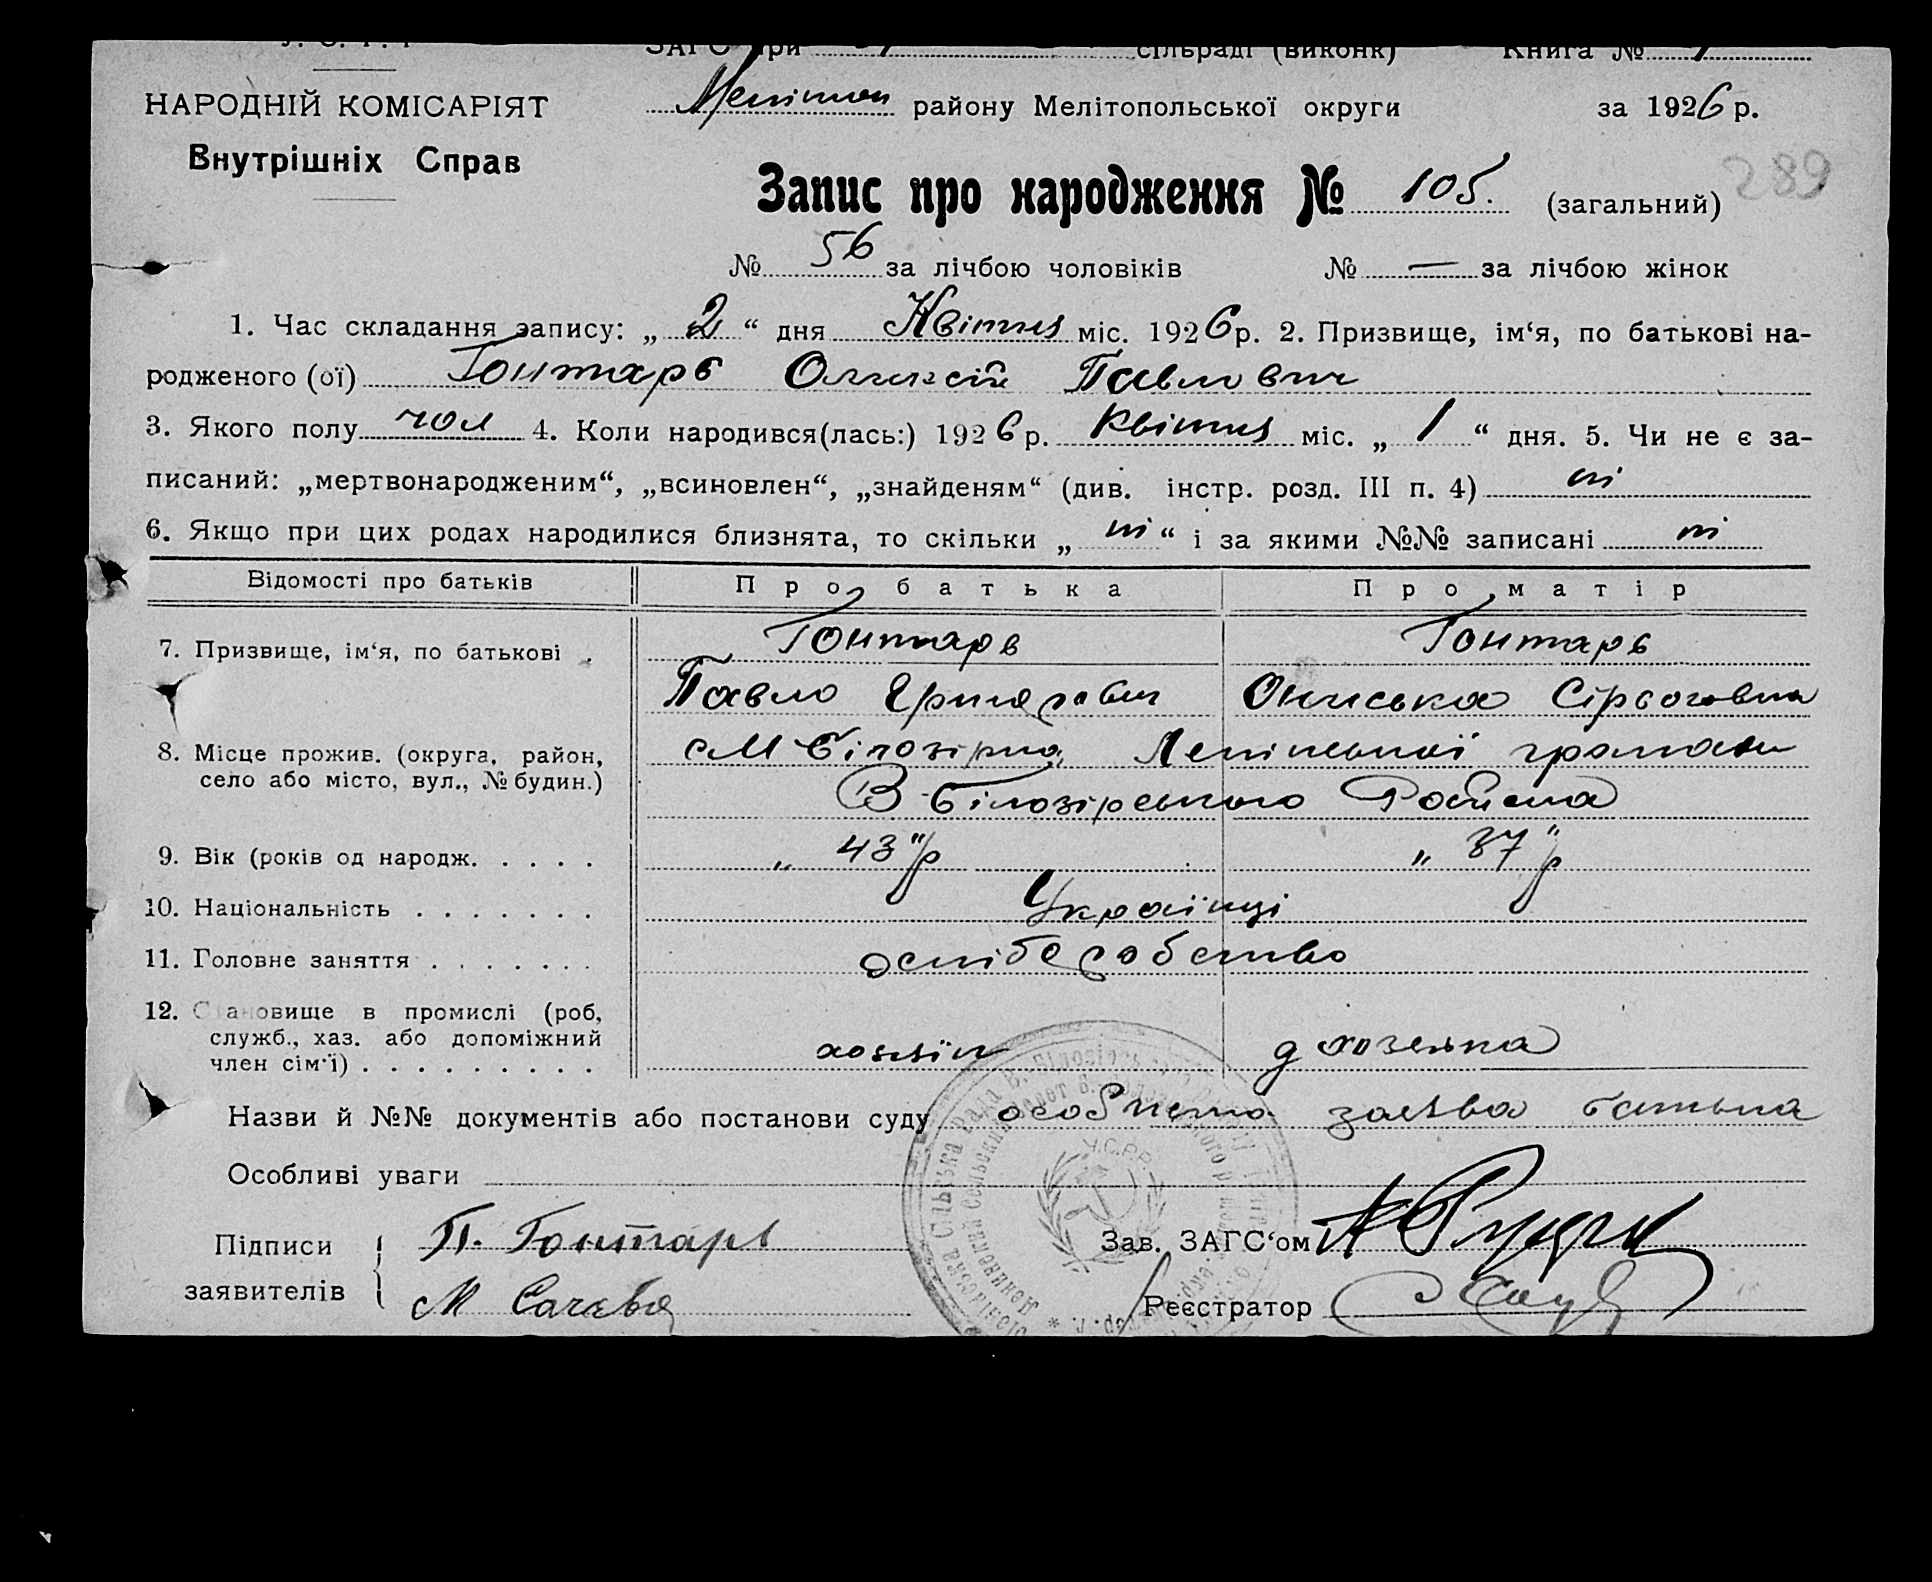 У. С. Р. Р
ЗАГС при сільраді (виконк) Книга №
району Мелітопольської округи за 1926 р.
НАРОДНІЙ КОМІСАРІЯТ
Внутрішніх Справ
Запис про народження № 105. (загальний) 289
№ 56 за лічбою чоловіків № — за лічбою жінок
1. Час складання запису: „ 2 “ дня Квітня міс. 1926 р. 2. Призвище, ім‘я, по батькові на-
родженого (ої) Гонтарь Олексій Павлович
3. Якого полу чол 4. Коли народився(лась:) 1926 р. Квітня міс. „ 1 “ дня. 5. Чи не є за-
писаний: „мертвонародженим“, „всиновлен“, „знайденям“ (див. інстр. розд. III п. 4) ні
6. Якщо при цих родах народилися близнята, то скільки „ ні “ і за якими №№ записані ні
Відомості про батьків Про батька Про матір
7. Призвище, ім‘я, по батькові Гонтарь Гонтарь
Павло Григорович Ониська
8. Місце прожив. (округа, район, с М Білозірка, громади
село або місто, вул., № будин.) В Білозірського Района
9. Вік (років од народж. . . . . „ 43 “ р „ 37 “ р
10. Національність . . . . . . . Українці
11. Головне заняття . . . . . . .
12. Становище в промислі (роб,
служб., хаз. або допоміжний
член сім‘ї) . . . . . . . . . хозяїн д хозяяка
Назви й №№ документів або постанови суду особиста заява батька
Особливі уваги
Підписи П. Гонтарь Зав. ЗАГС‘ом
заявителів М Реєстратор
У.С.Р.Р.